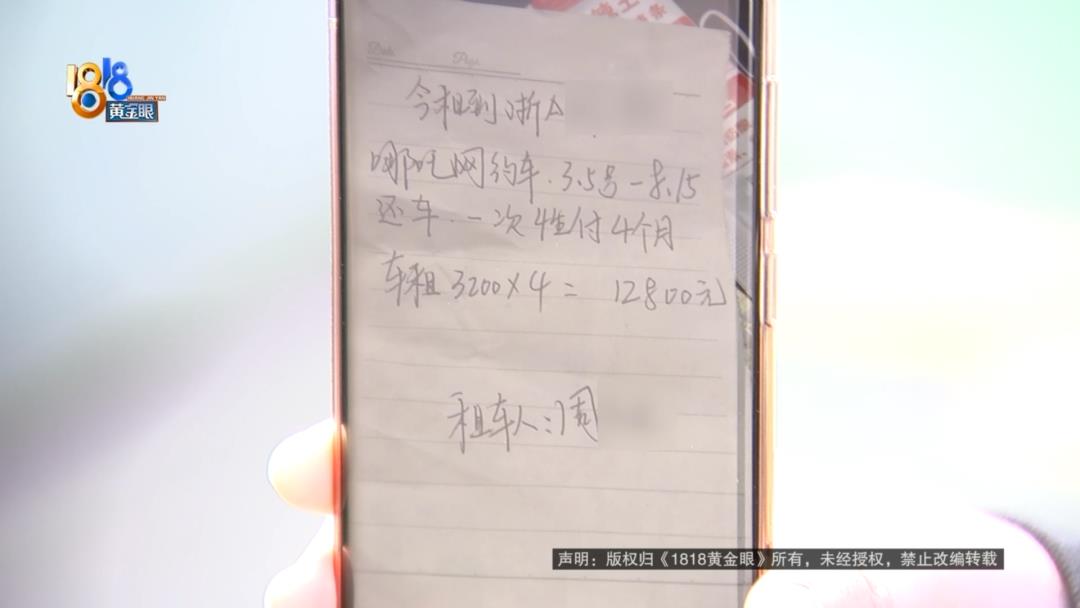 1818
HUANG JIN YAN
黄金眼
Date
Page
今租到浙A
哪吒网约车.3.5号-8.15
还车.一次性付4个月
车租3200×4=12800元
租车人:周
声明：版权归《1818黄金眼》所有，未经授权，禁止改编转载